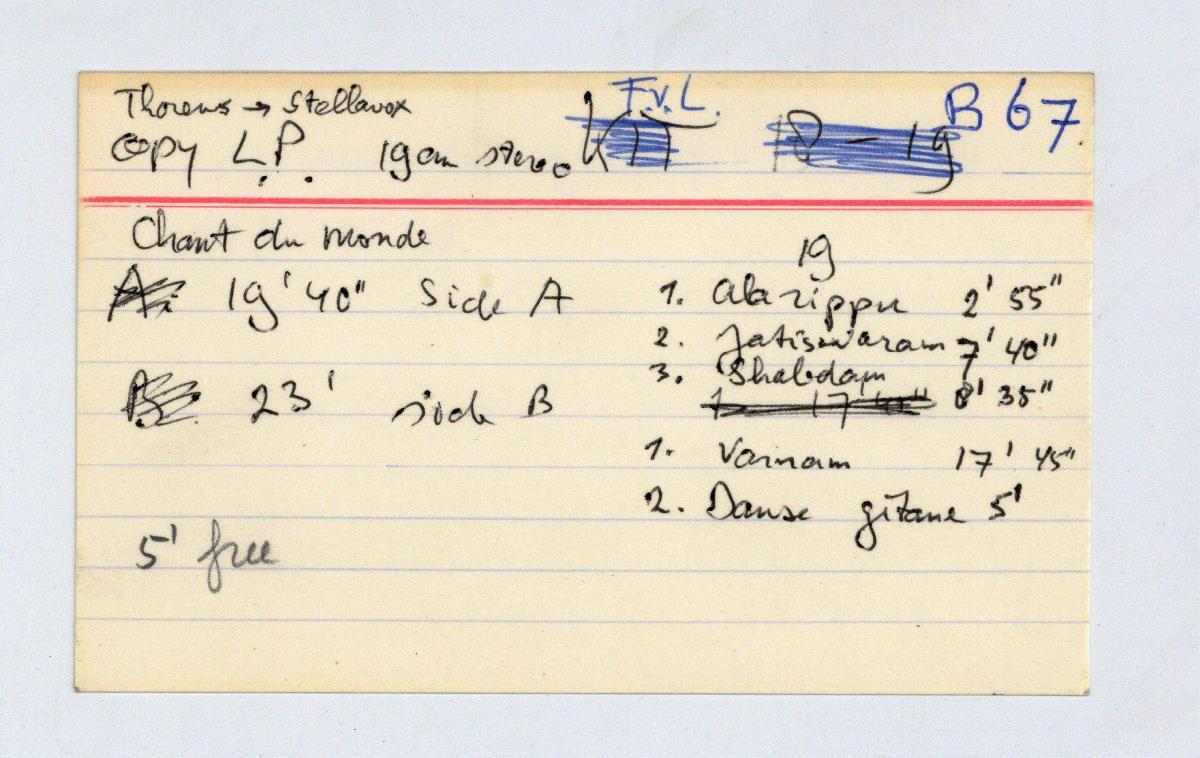 Thorens → Stellavox F.v.L. B 67.
copy L.P. 19 cm stereo 18 – 19
Chant du Monde
19
19' 40" Side A 1. Alarippu 2' 55"
2. Jatiswaram 7' 40"
3. Shabdam 8' 35"
23' side B
1. Varnam 17' 45"
2. Danse gitane 5'
5' free